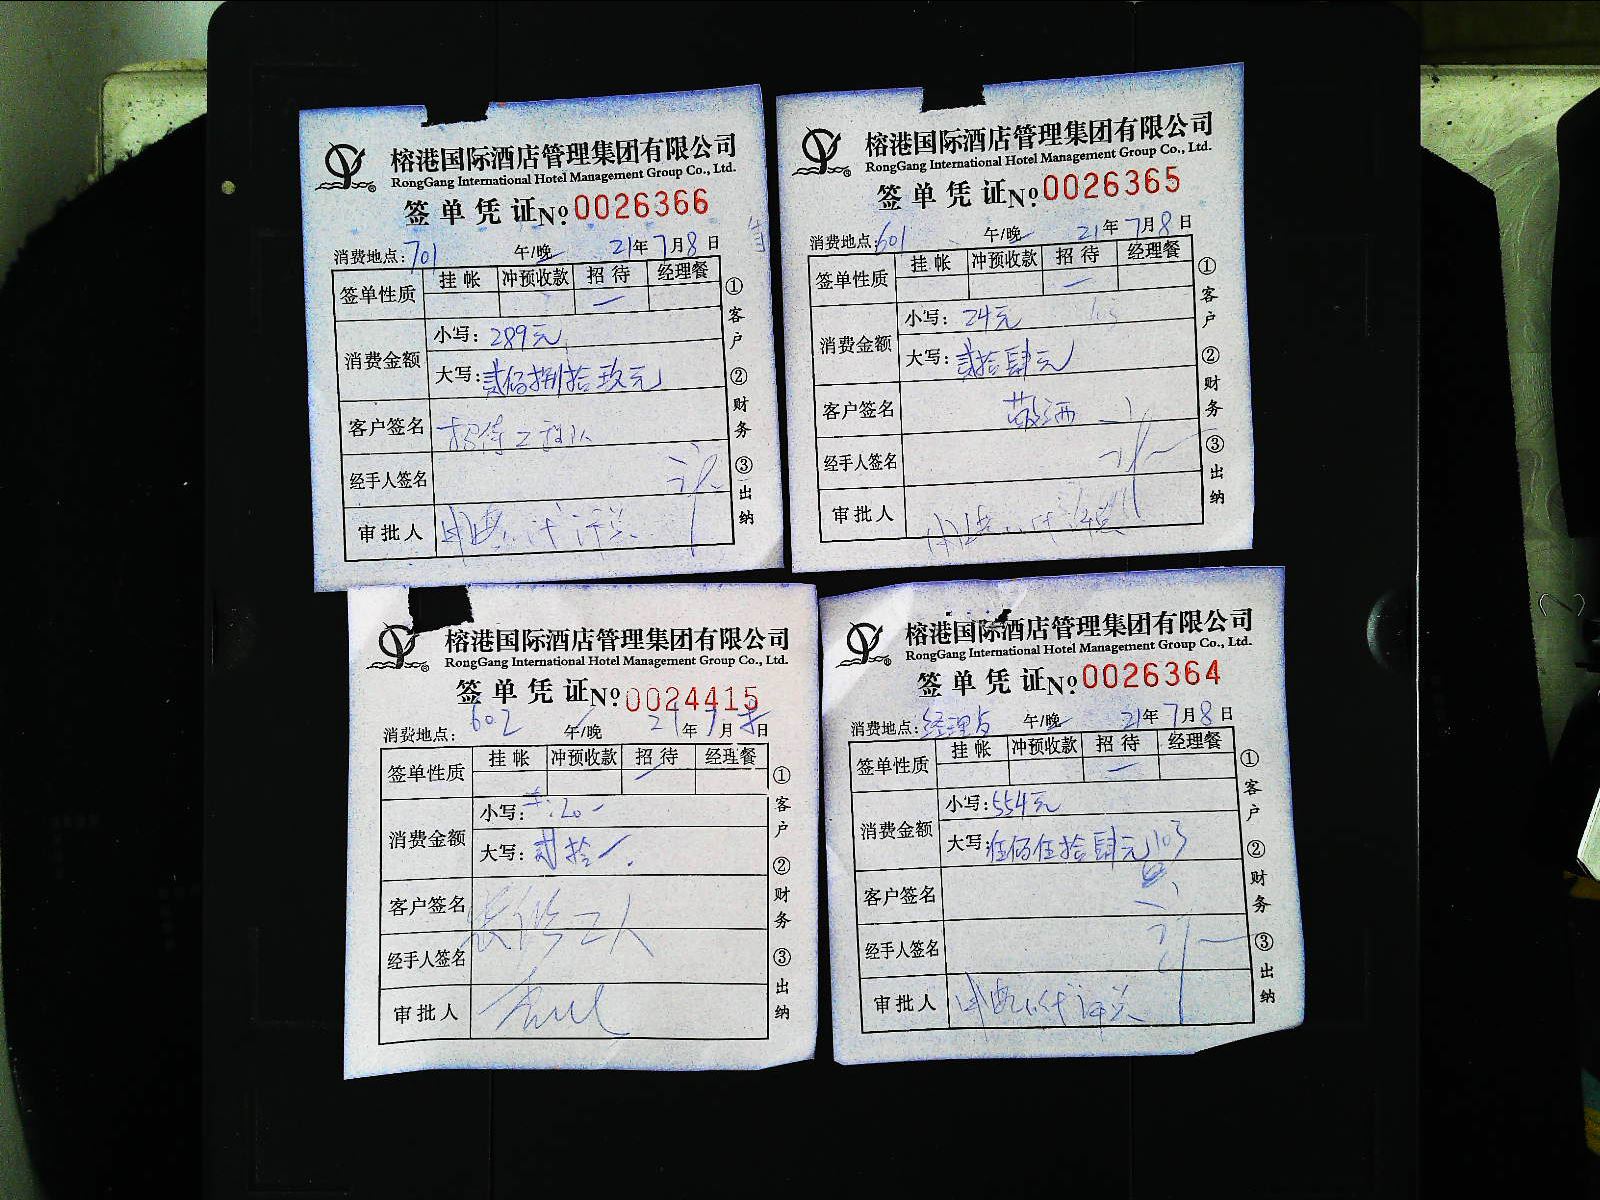 榕港国际酒店管理集团有限公司
RongGang International Hotel Management Group Co., Ltd.
签单凭证 No. 0026366
消费地点: 701 午/晚 21年7月8日
签单性质 挂帐 冲预收款 招待 经理餐
消费金额 小写: 289元
大写: 贰佰捌拾玖元
客户签名 招待工程队
经手人签名
审批人
①客户 ②财务 ③出纳
榕港国际酒店管理集团有限公司
RongGang International Hotel Management Group Co., Ltd.
签单凭证 No. 0026365
消费地点: 601 午/晚 21年7月8日
签单性质 挂帐 冲预收款 招待 经理餐
消费金额 小写: 24元
大写: 贰拾肆元
客户签名 敬酒
经手人签名
审批人
①客户 ②财务 ③出纳
榕港国际酒店管理集团有限公司
RongGang International Hotel Management Group Co., Ltd.
签单凭证 No. 0024415
消费地点: 602 午/晚 21年7月日
签单性质 挂帐 冲预收款 招待 经理餐
消费金额 小写: 20
大写: 贰拾
客户签名 装修工人
经手人签名
审批人
①客户 ②财务 ③出纳
榕港国际酒店管理集团有限公司
RongGang International Hotel Management Group Co., Ltd.
签单凭证 No. 0026364
消费地点: 经理房 午/晚 21年7月8日
签单性质 挂帐 冲预收款 招待 经理餐
消费金额 小写: 554元
大写: 伍佰伍拾肆元
客户签名
经手人签名
审批人
①客户 ②财务 ③出纳